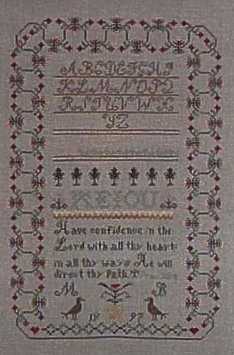 ABCDEFGHI
KLMNOPQ
RSTUVWX
YZ
AEIOU
Have confidence in the
Lord with all thy heart
in all thy ways He will
direct thy Path
M B
19 97